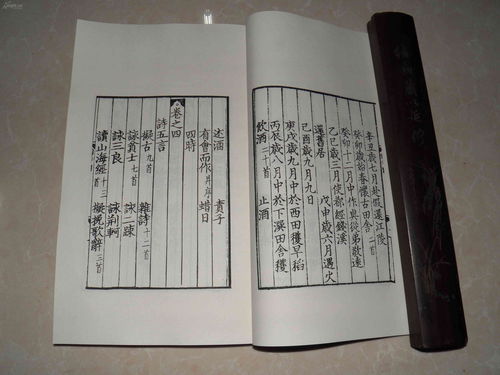 辛丑歲七月赴假還江陵
癸卯歲始春懷古田舍二首
癸卯十二月中作與從弟敬遠
乙巳歲三月使都經錢溪
還舊居 戊申歲六月遇火
己酉歲九月九日
庚戌歲九月中於西田穫早稻
丙辰歲八月中於下潠田舍穫
飲酒二十首 止酒
述酒 責子
有會而作并序 蜡日
四時
卷之四
詩五言
擬古九首 雜詩十二首
詠貧士七首 詠二疎
詠三良 詠荊軻
讀山海經十三 擬挽歌辭三首